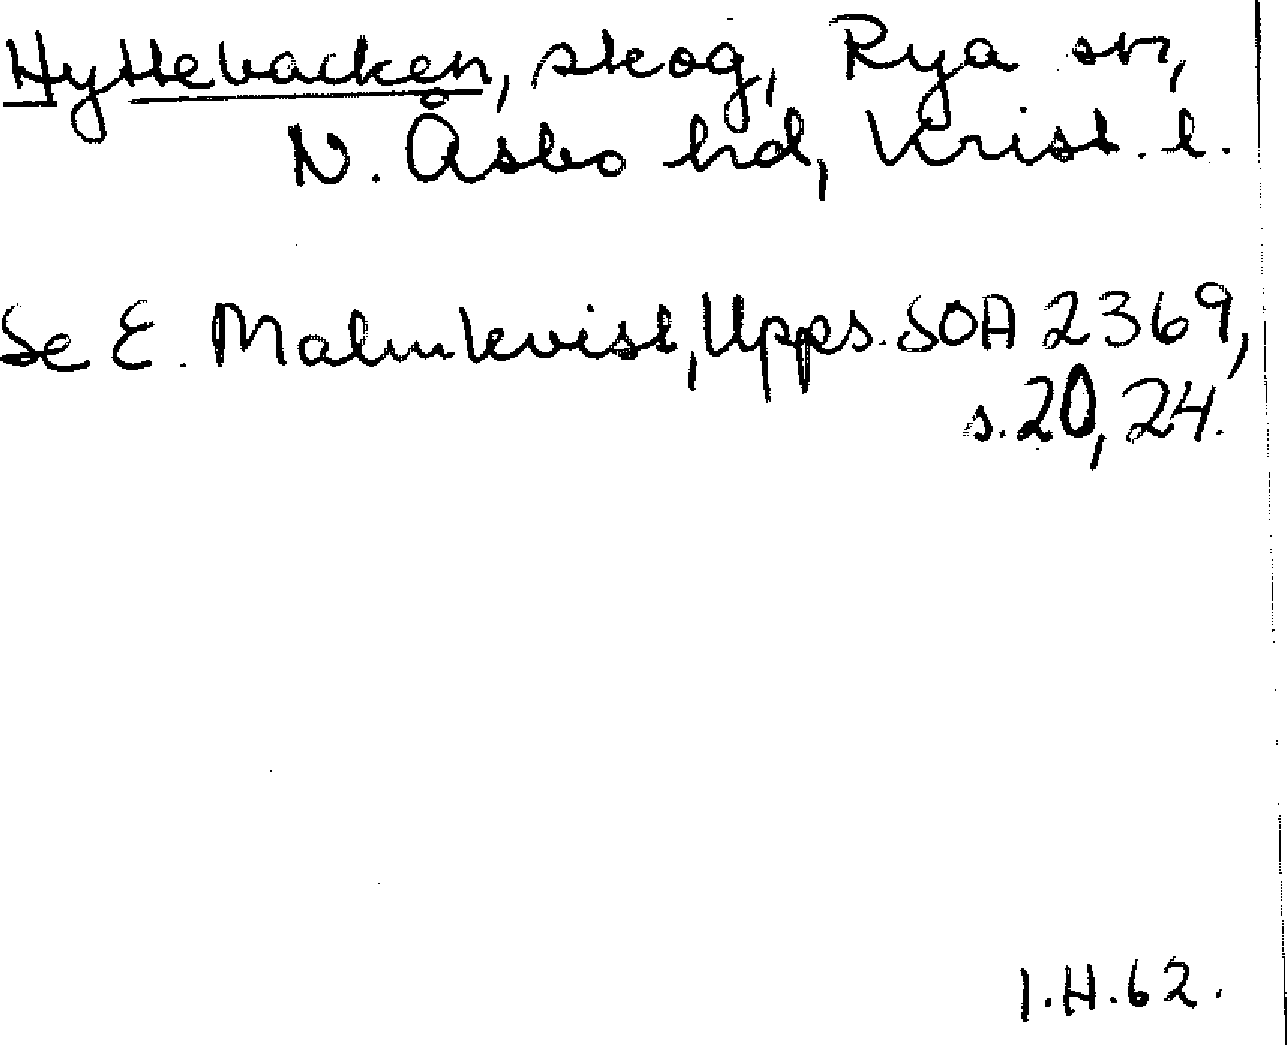 Hyttebacken, skog, Rya sn,
N. Åsbo hd, Krist. l.
Se E. Malmkvist, Upps. SOA 2369,
s. 20, 24.
I.H. 62.